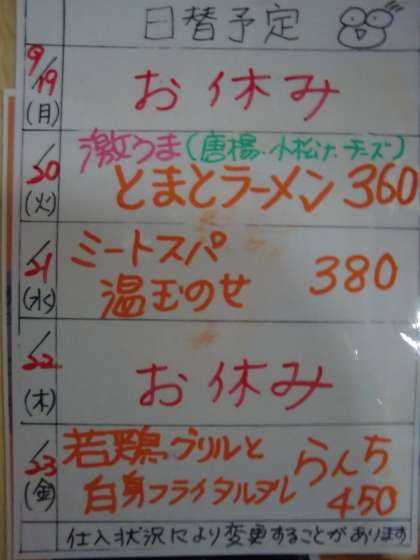 日替予定
9/19
(月)
お休み
20
(火)
激うま(唐揚・小松ナ・チーズ)
とまとラーメン 360
21
(水)
ミートスパ
温玉のせ 380
22
(木)
お休み
23
(金)
若鶏グリルと
白身フライタルタル
らんち
450
仕入状況により変更することがあります